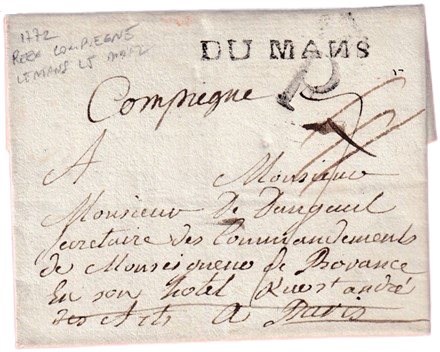 1772
REEX COMPIEGNE
LEMANS LE MANZ
DU MANS
P
Compiegne
A Monsieur
Monsieur De Dangeul
Secretaire des Commandements
de Monseigneur de Provance
En son hotel Rue st andré
des Arts A Paris